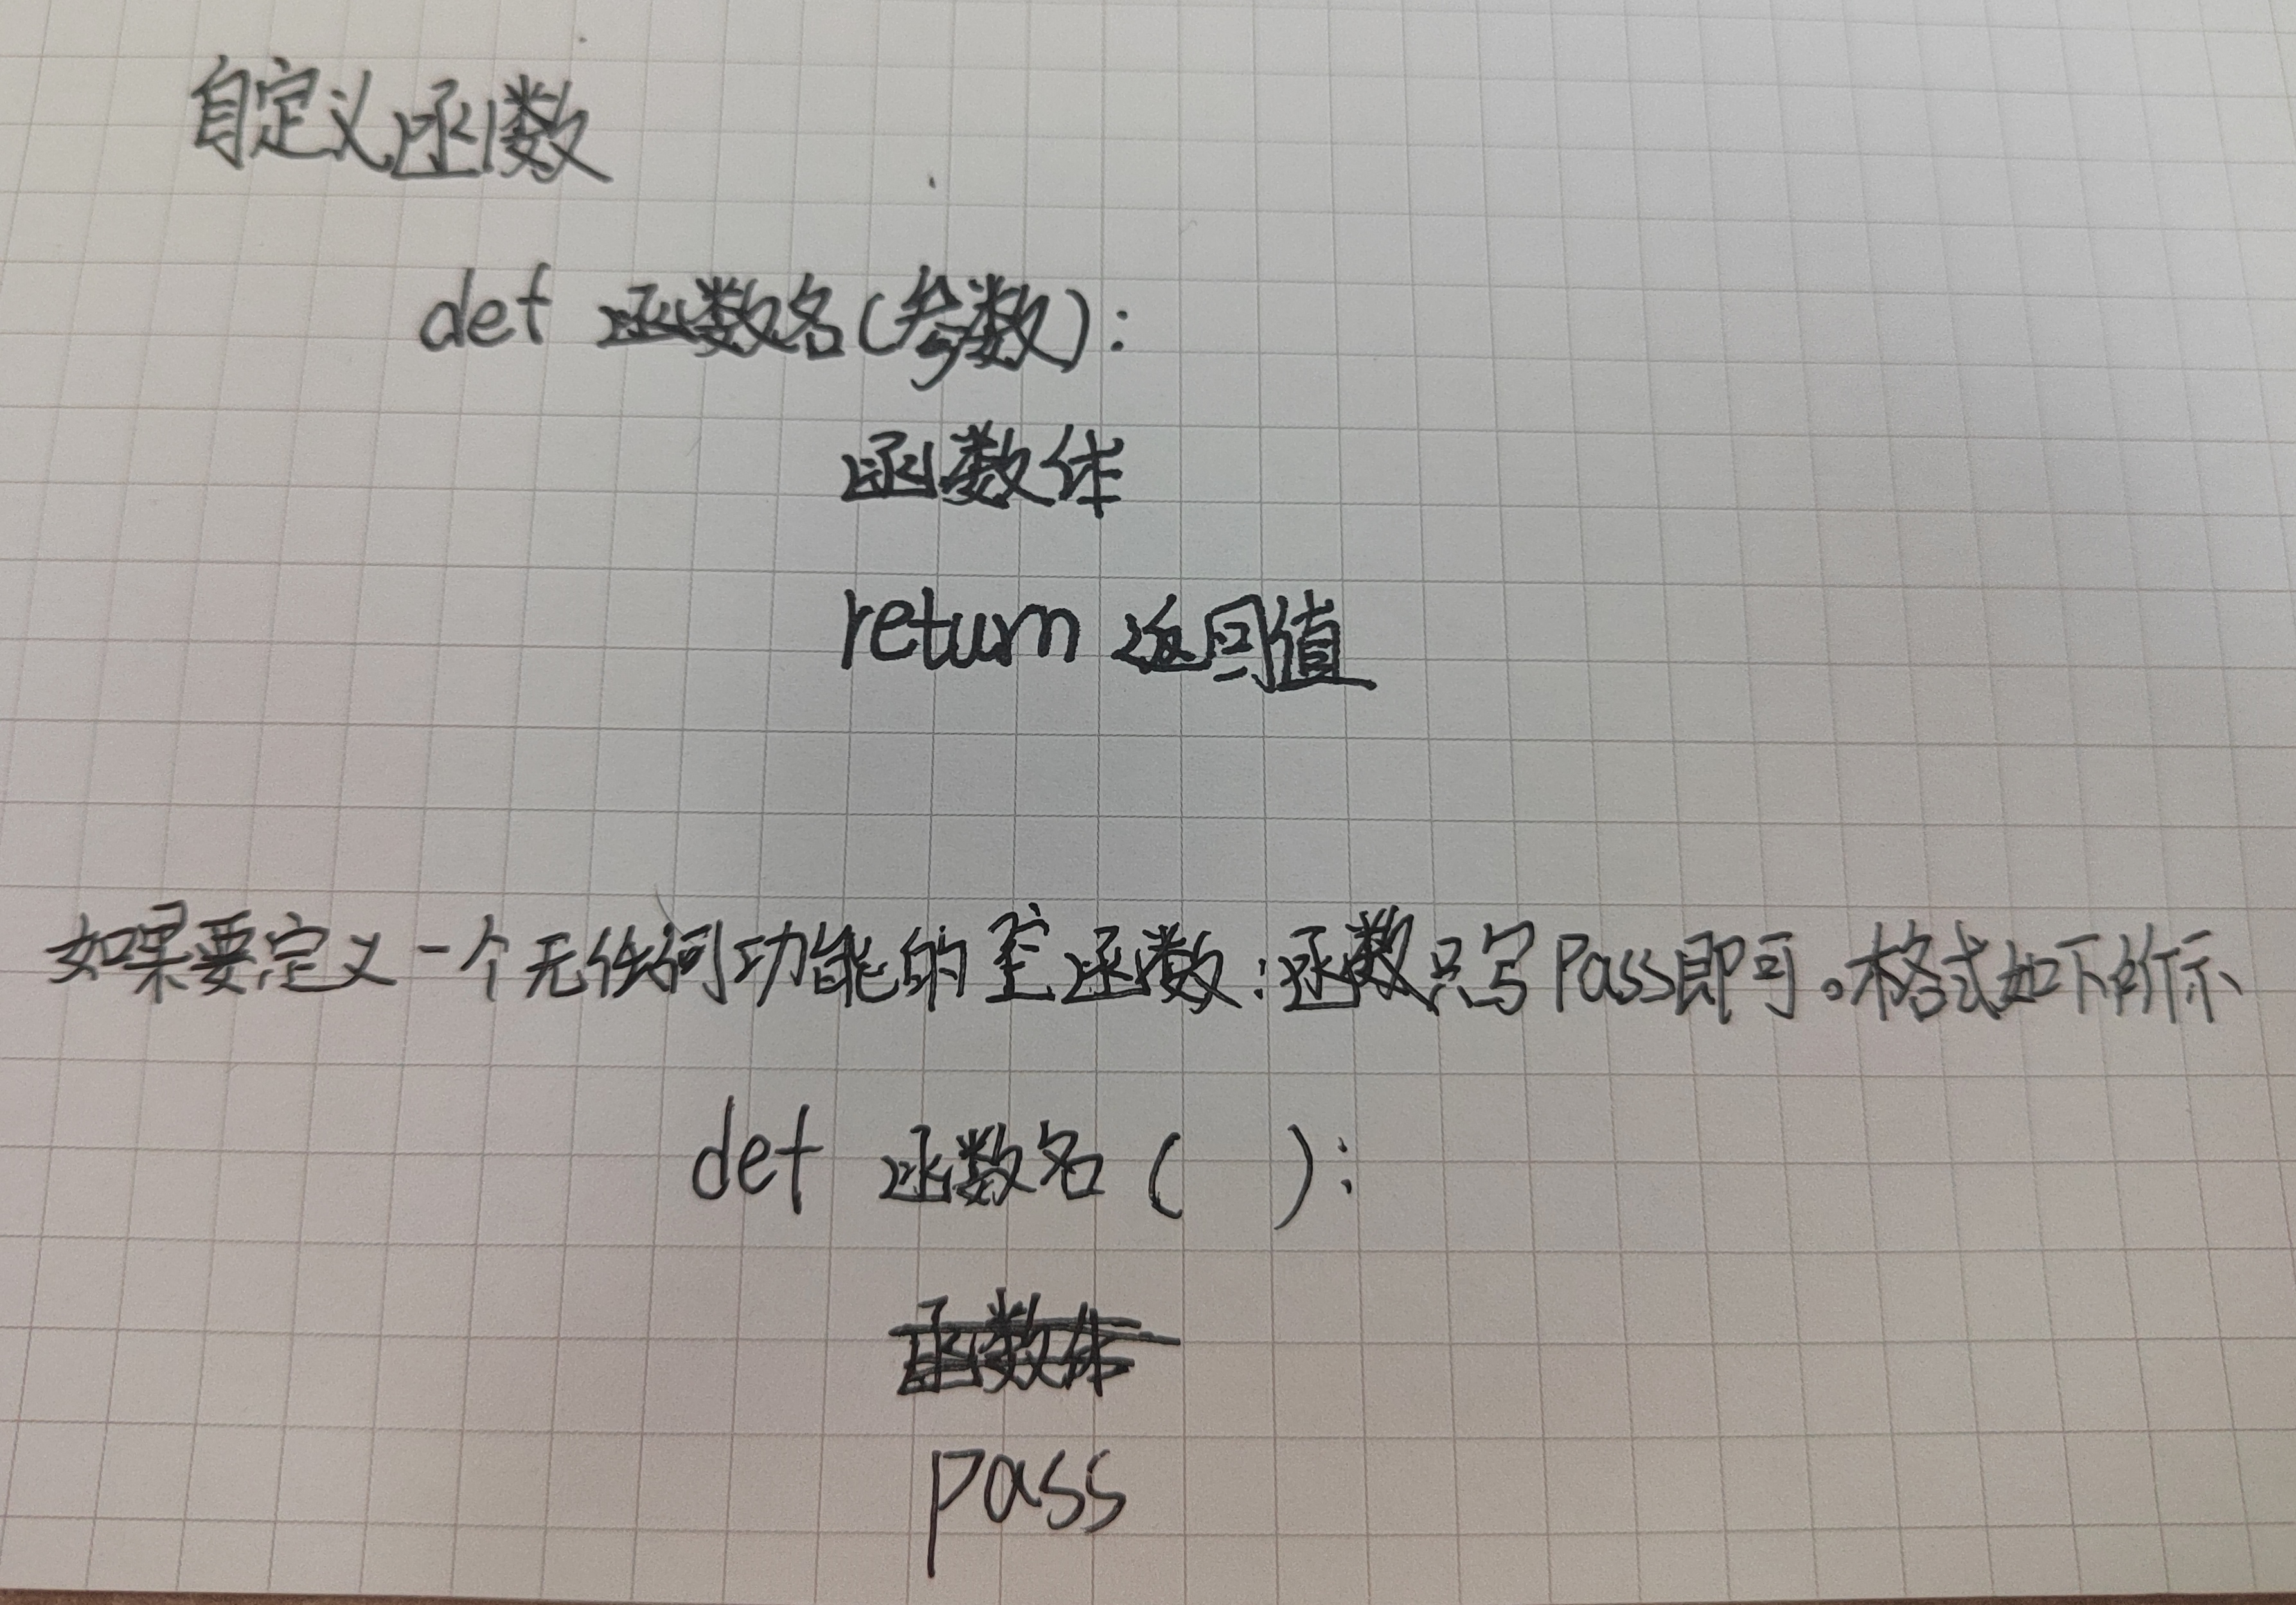 自定义函数
def 函数名(参数):
函数体
return 返回值
如果要定义一个无任何功能的空函数:函数只写Pass即可。格式如下所示
def 函数名( ):
函数体
pass